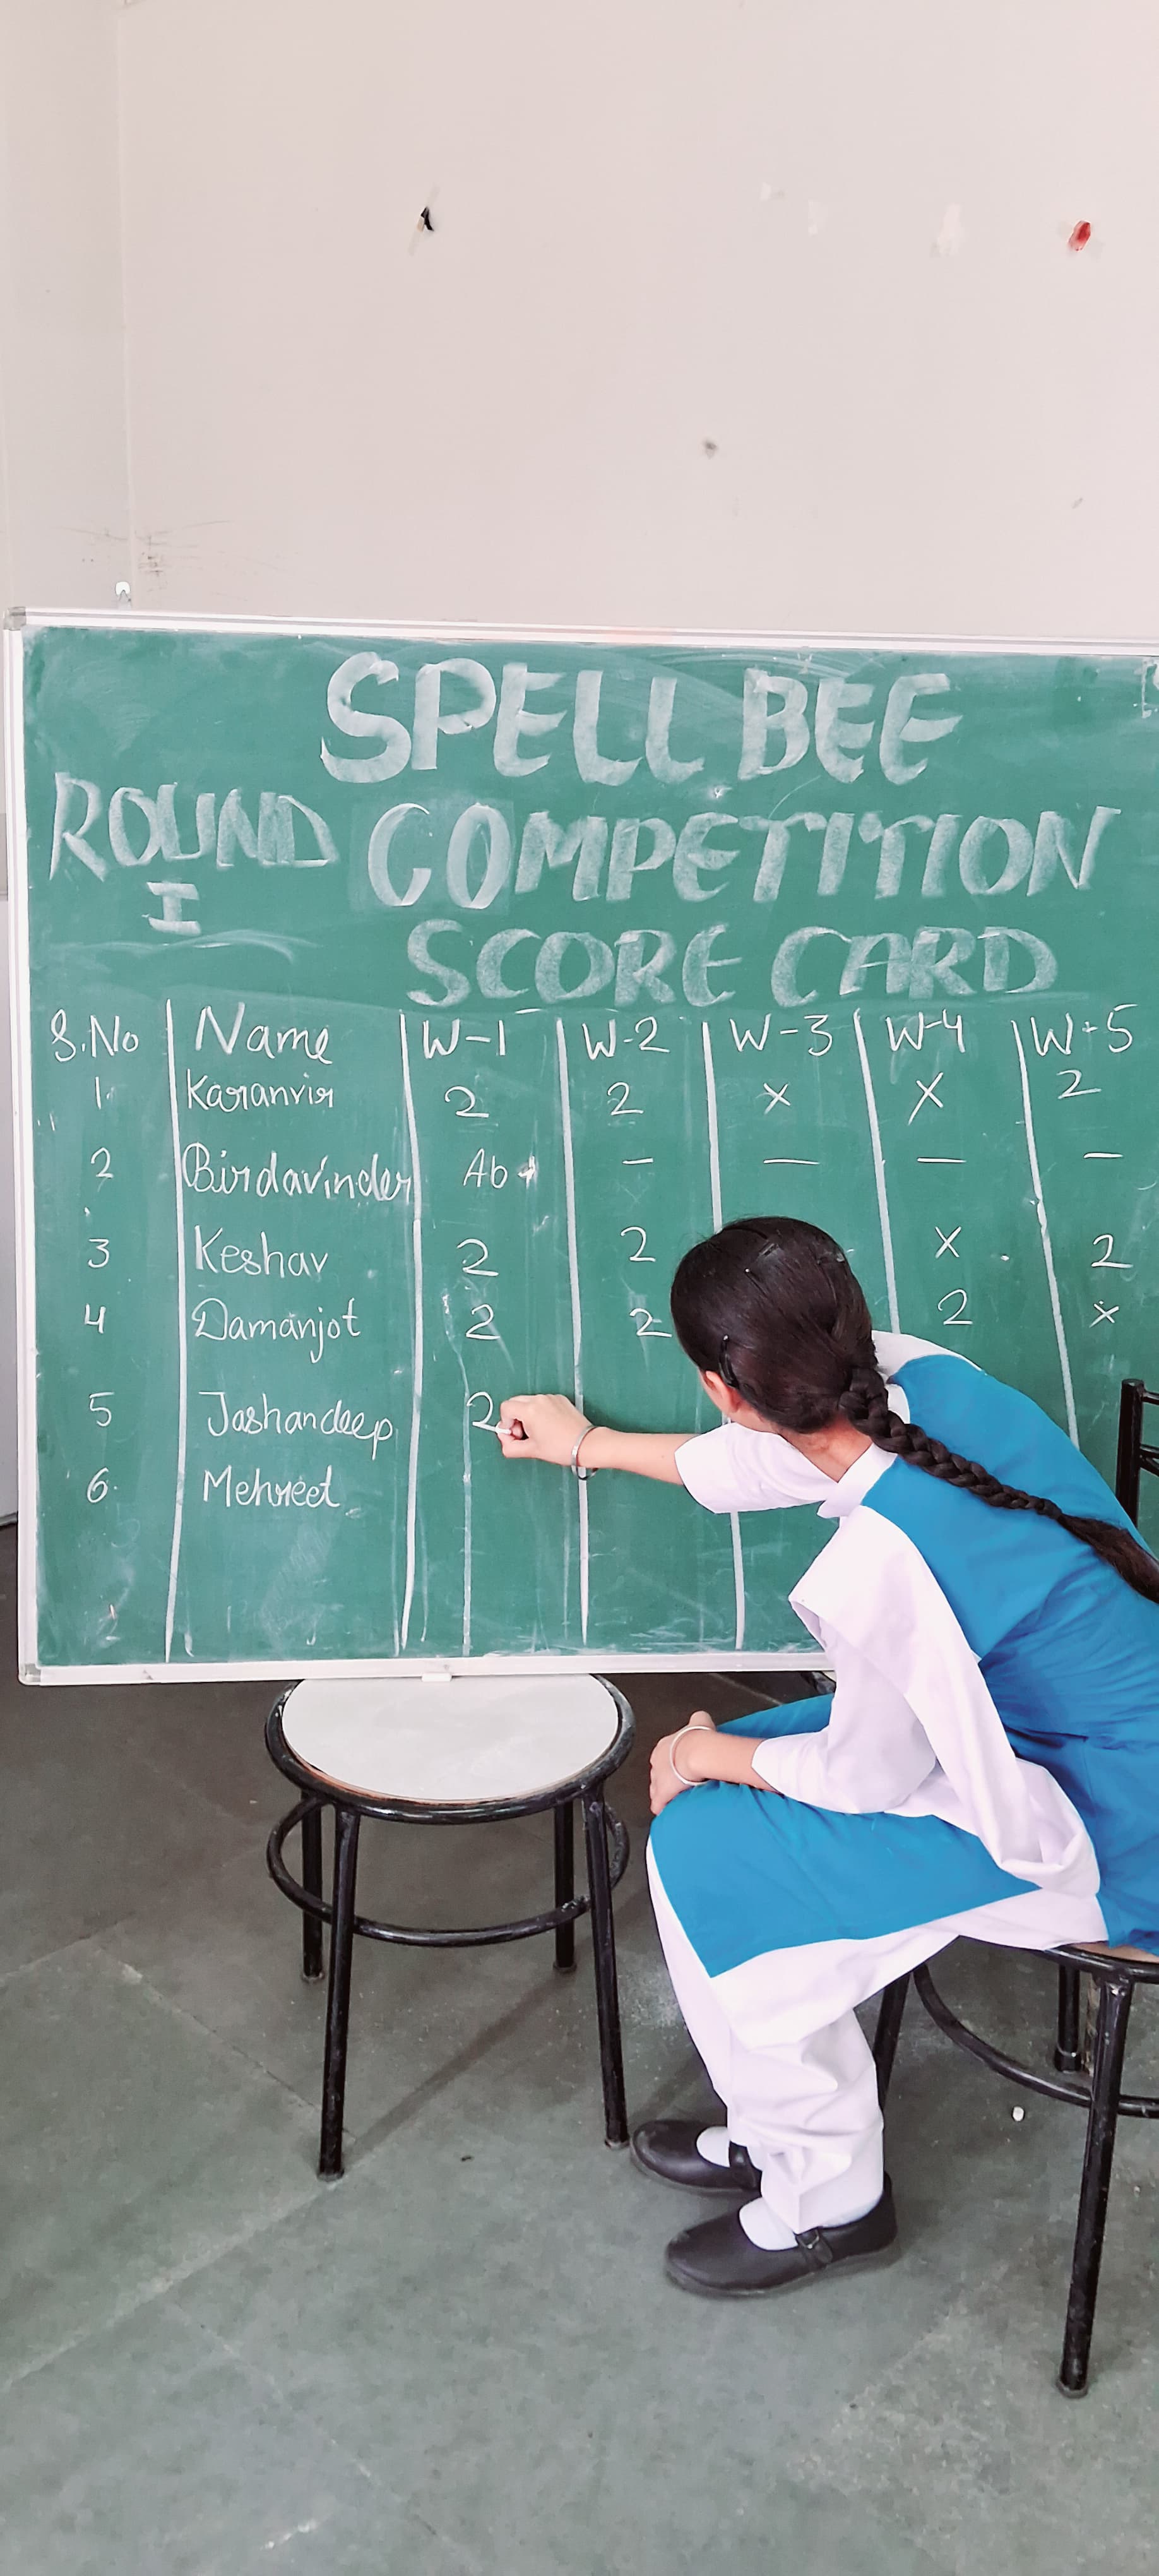 SPELL BEE
ROUND I COMPETITION
SCORE CARD
S.No Name W-1 W-2 W-3 W-4 W-5
1. Karanvir 2 2 x x 2
2 Birdavinder Ab - - - -
3 Keshav 2 2 x 2
4 Damanjot 2 2 2 x
5 Jashandeep 2
6. Mehreet